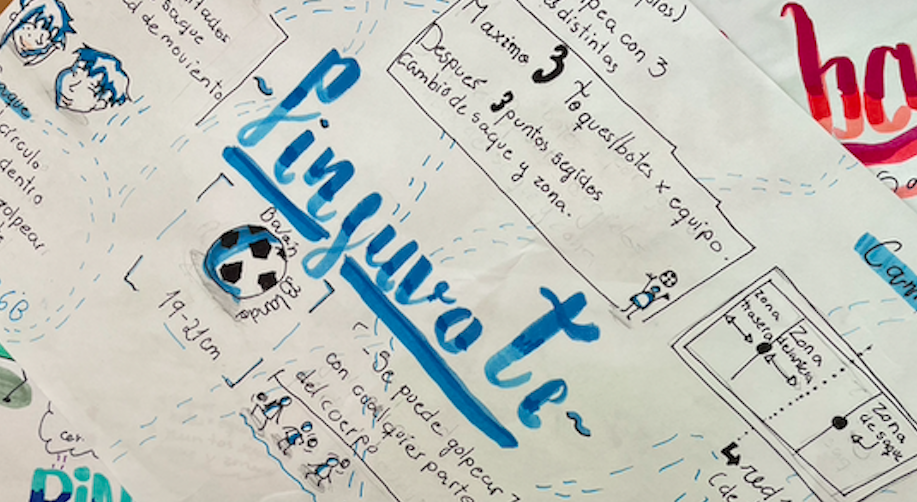 tados
saque
d de moviento
círculo
dentro
golpear
con 3
distintas
Maximo 3 toques/botes x equipo
Despues 3 puntos segidos
cambio de saque y zona.
Pinguvote
Balón
Blando
19-21cm
-Se puede golpear
con cualquier parte
del cuerpo
zona
trasera
Zona
delantera
zona
de saque
red
6B